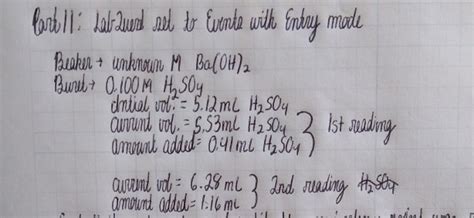 Part II: LabQuest set to Events with Entry mode
Beaker → unknown M Ba(OH)₂
Buret → 0.100 M H₂SO₄
initial vol. = 5.12 mL H₂SO₄
current vol. = 5.53 mL H₂SO₄
amount added = 0.41 mL H₂SO₄ } 1st reading
current vol = 6.28 mL } 2nd reading H₂SO₄
amount added = 1.16 mL